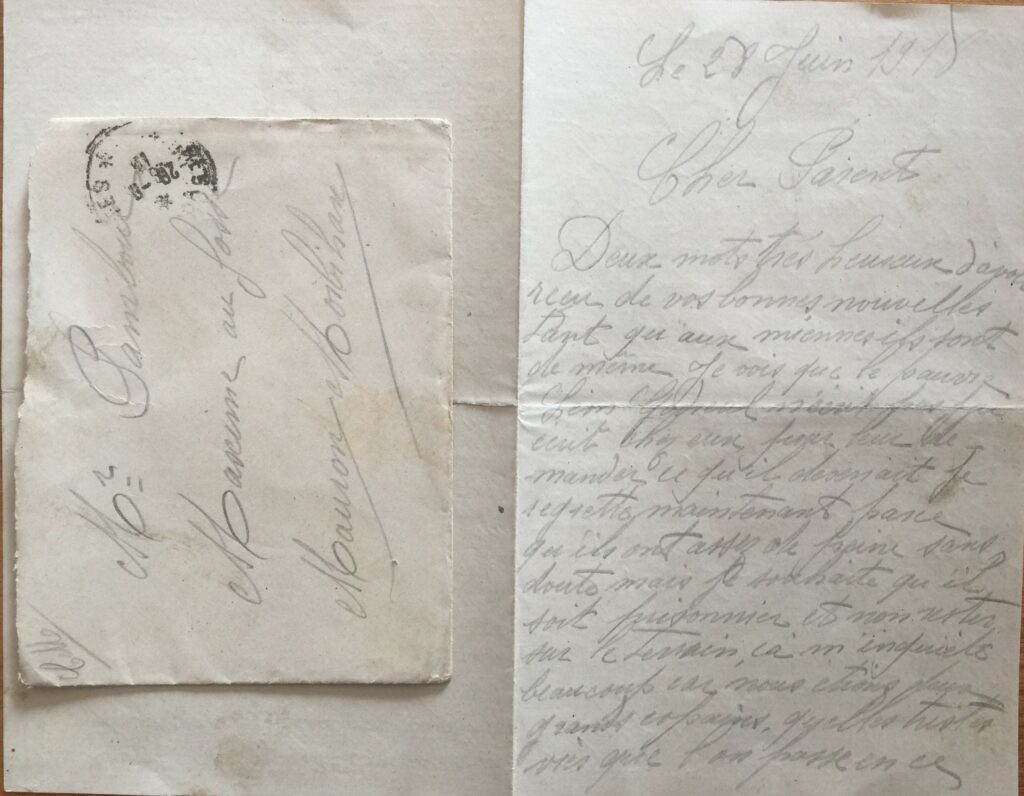 Le 28 Juin 191
Cher Parent
Deux mots très heureux d'avoi
reçu de vos bonnes nouvelles
tant qu'aux miennes ils sont
de même. Je vois que le pauvre
écrit chez eux pour leur de
mander ce qu'il devenait Je
regrette maintenant parce
qu'ils ont assez de peine sans
doute mais je souhaite qu'il
soit prisonnier et non rester
sur le terrain, ça m'inquiète
beaucoup car nous étions
grands copains, quelles tristes
que l'on passe en ce
Mr
Maxime au
Mauron Morbihan